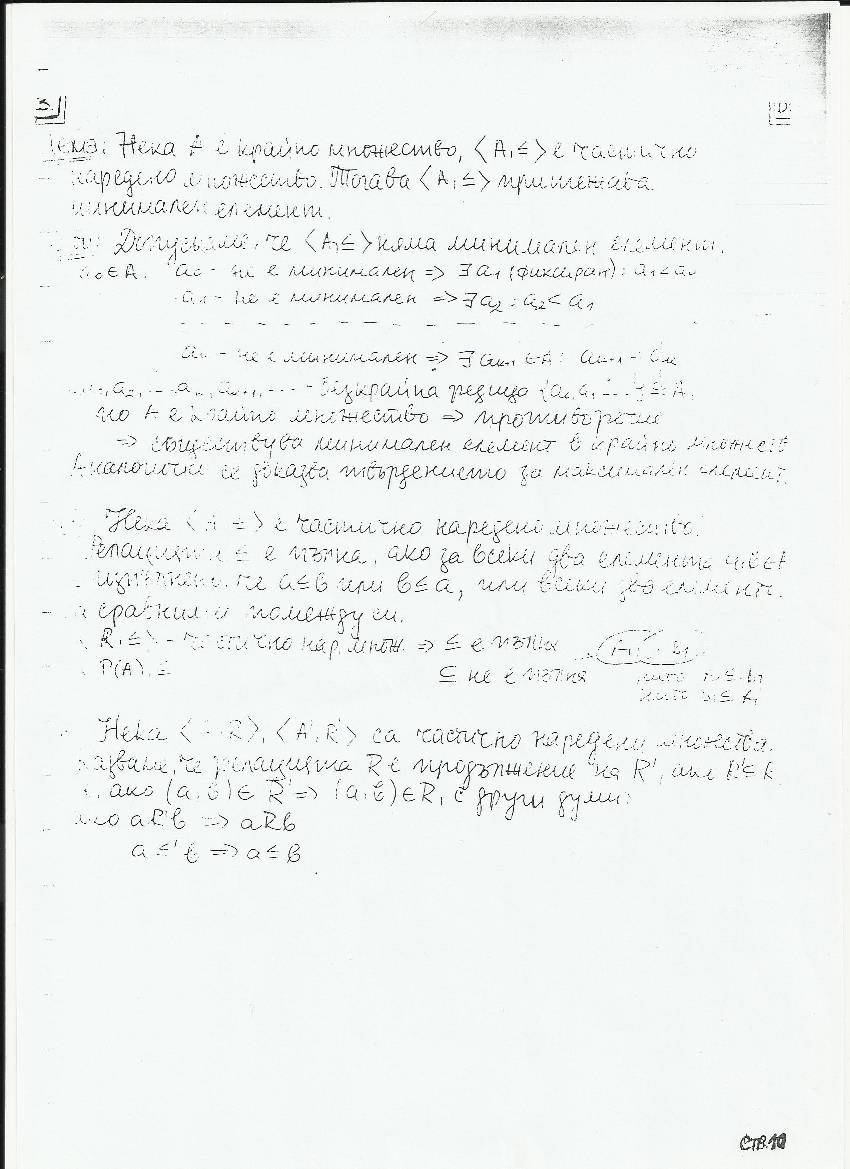 3.
Нека A е крайно множество, ⟨A, ≤⟩ е частично
наредено множество. Тогава ⟨A, ≤⟩ притежава
минимален елемент.
Допускаме, че ⟨A, ≤⟩ няма минимален елемент.
a₀ ∈ A. a₀ - не е минимален => ∃ a₁ (фиксиран) : a₁ < a₀
a₁ - не е минимален => ∃ a₂ : a₂ < a₁
- не е минимален => ∃ ∈ A :
a₂, ... - безкрайна редица ⊆ A,
но A е крайно множество => противоречие
=> съществува минимален елемент в крайно
Аналогично се доказва твърдението за максимален елемент.
Нека ⟨A, ≤⟩ е частично наредено множество.
Релацията ≤ е пълна, ако за всеки два елемента
че a ≤ b или b ≤ a, или всеки два елемента
сравними помежду си.
R, ≤⟩ - частично нар. множ. => ≤ е пълна
P(A), ⊆ ⊆ не е пълна
Нека R⟩, ⟨A', R'⟩ са частично наредени множества.
че релацията R е продължение на R', ако R' ⊆ R
ако (a, b) ∈ R' => (a, b) ∈ R, с други думи:
aR'b => aRb
a ≤' b => a ≤ b
СТР. 10